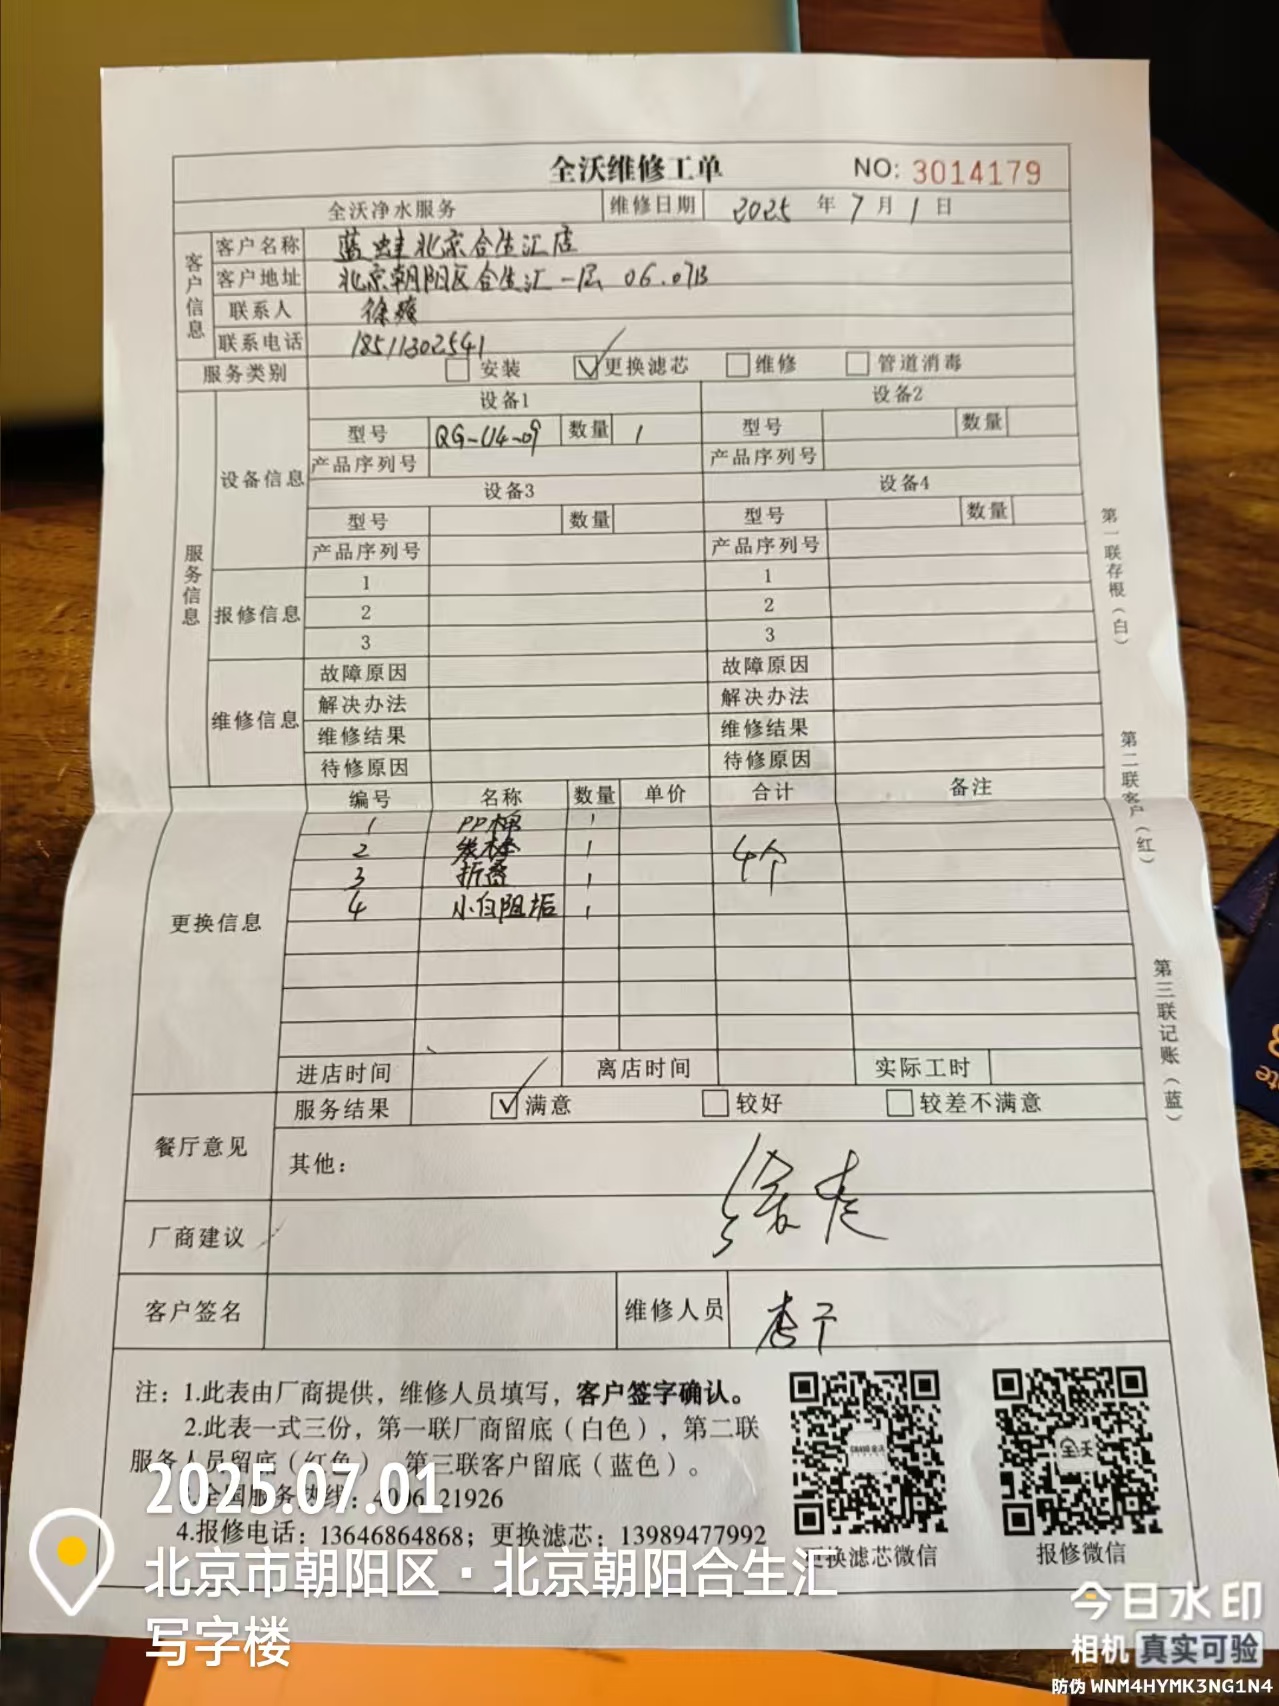 全沃维修工单 NO: 3014179
全沃净水服务 维修日期 2025 年 7 月 1 日
客户信息
客户名称 蓝蛙北京合生汇店
客户地址 北京朝阳区合生汇一层 06.07B
联系人 徐
联系电话 18511302541
服务类别 安装 更换滤芯 维修 管道消毒
服务信息
设备信息
设备1 设备2
型号 QG-U4-09 数量 1 型号 数量
产品序列号 产品序列号
设备3 设备4
型号 数量 型号 数量
产品序列号 产品序列号
报修信息
1 1
2 2
3 3
维修信息
故障原因 故障原因
解决办法 解决办法
维修结果 维修结果
待修原因 待修原因
更换信息
编号 名称 数量 单价 合计 备注
1 PP棉 1
2 炭棒 1 4个
3 折叠 1
4 小白阻垢 1
进店时间 离店时间 实际工时
餐厅意见
服务结果 满意 较好 较差不满意
其他：
厂商建议
客户签名 维修人员 李
注：1.此表由厂商提供，维修人员填写，客户签字确认。
2.此表一式三份，第一联厂商留底（白色），第二联
服务人员留底（红色） 第三联客户留底（蓝色）。
全国服务热线： 21926
4.报修电话：13646864868；更换滤芯：13989477992
更换滤芯微信 报修微信
第一联存根（白）
第二联客户（红）
第三联记账（蓝）
2025.07.01
北京市朝阳区·北京朝阳合生汇
写字楼
今日水印
相机 真实可验
防伪 WNM4HYMK3NG1N4